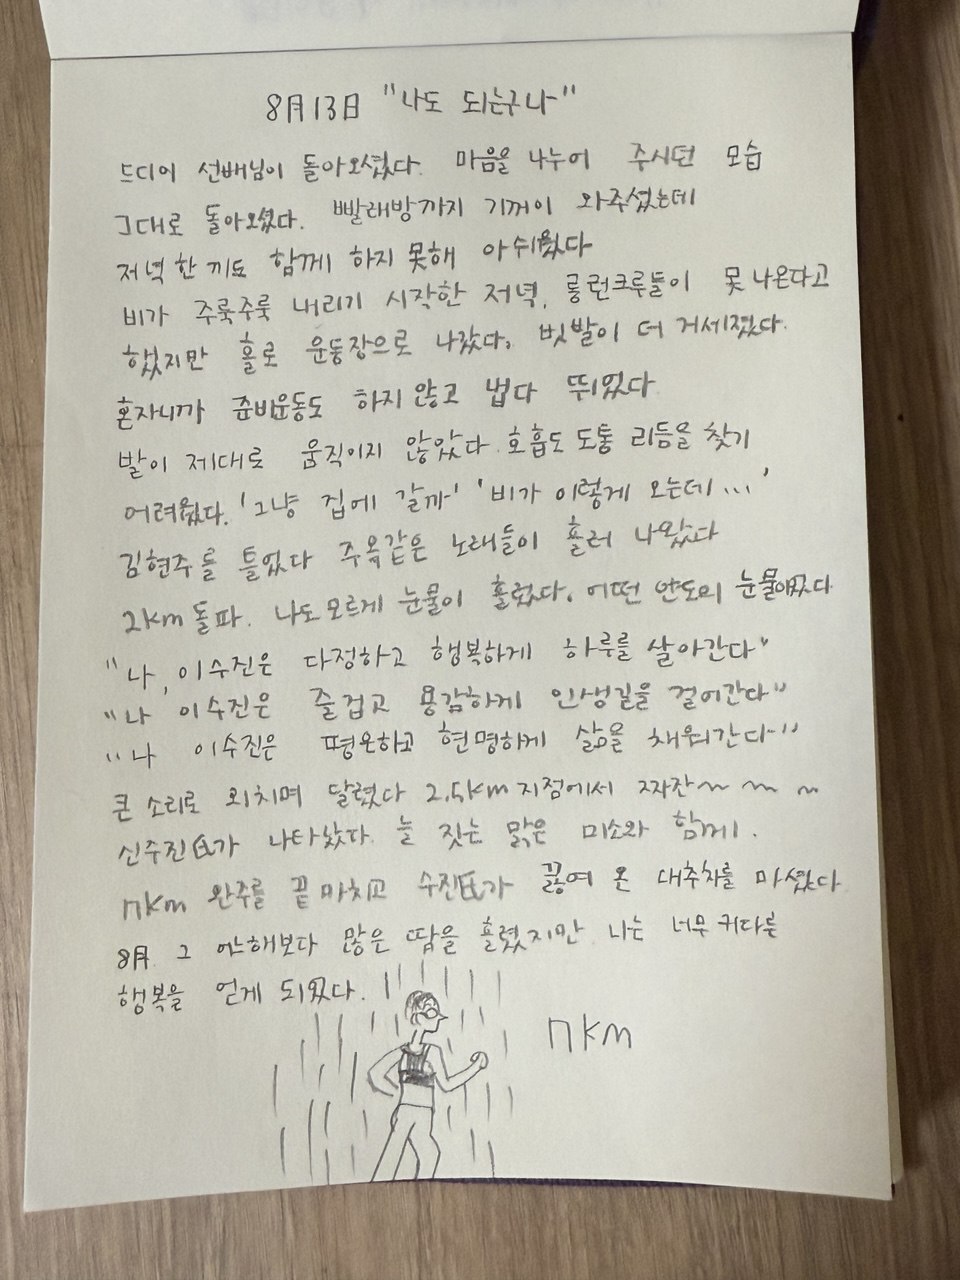 8月13日 "나도 되는구나"
드디어 선배님이 돌아오셨다. 마음을 나누어 주시던 모습
그대로 돌아오셨다. 빨래방까지 기꺼이 와주셨는데
저녁 한 끼도 함께 하지 못해 아쉬웠다
비가 주룩주룩 내리기 시작한 저녁. 롱런크루들이 못 나온다고
했지만 홀로 운동장으로 나갔다. 빗발이 더 거세졌다.
혼자니까 준비운동도 하지 않고 냅다 뛰었다
발이 제대로 움직이지 않았다. 호흡도 도통 리듬을 찾기
어려웠다. '그냥 집에 갈까' '비가 이렇게 오는데...'
김현주를 틀었다 주옥같은 노래들이 흘러 나왔다
2km 돌파. 나도 모르게 눈물이 흘렀다. 어떤 안도의 눈물이었다
"나, 이수진은 다정하고 행복하게 하루를 살아간다"
"나 이수진은 즐겁고 용감하게 인생길을 걸어간다"
"나 이수진은 평온하고 현명하게 삶을 채워간다"
큰 소리로 외치며 달렸다 2.5km 지점에서 짜잔~ ~ ~
신수진氏가 나타났다. 늘 짓는 맑은 미소와 함께.
7km 완주를 끝마치고 수진氏가 끓여 온 대추차를 마셨다
8月 그 어느해보다 많은 땀을 흘렸지만 나는 너무 커다란
행복을 얻게 되었다.
7KM